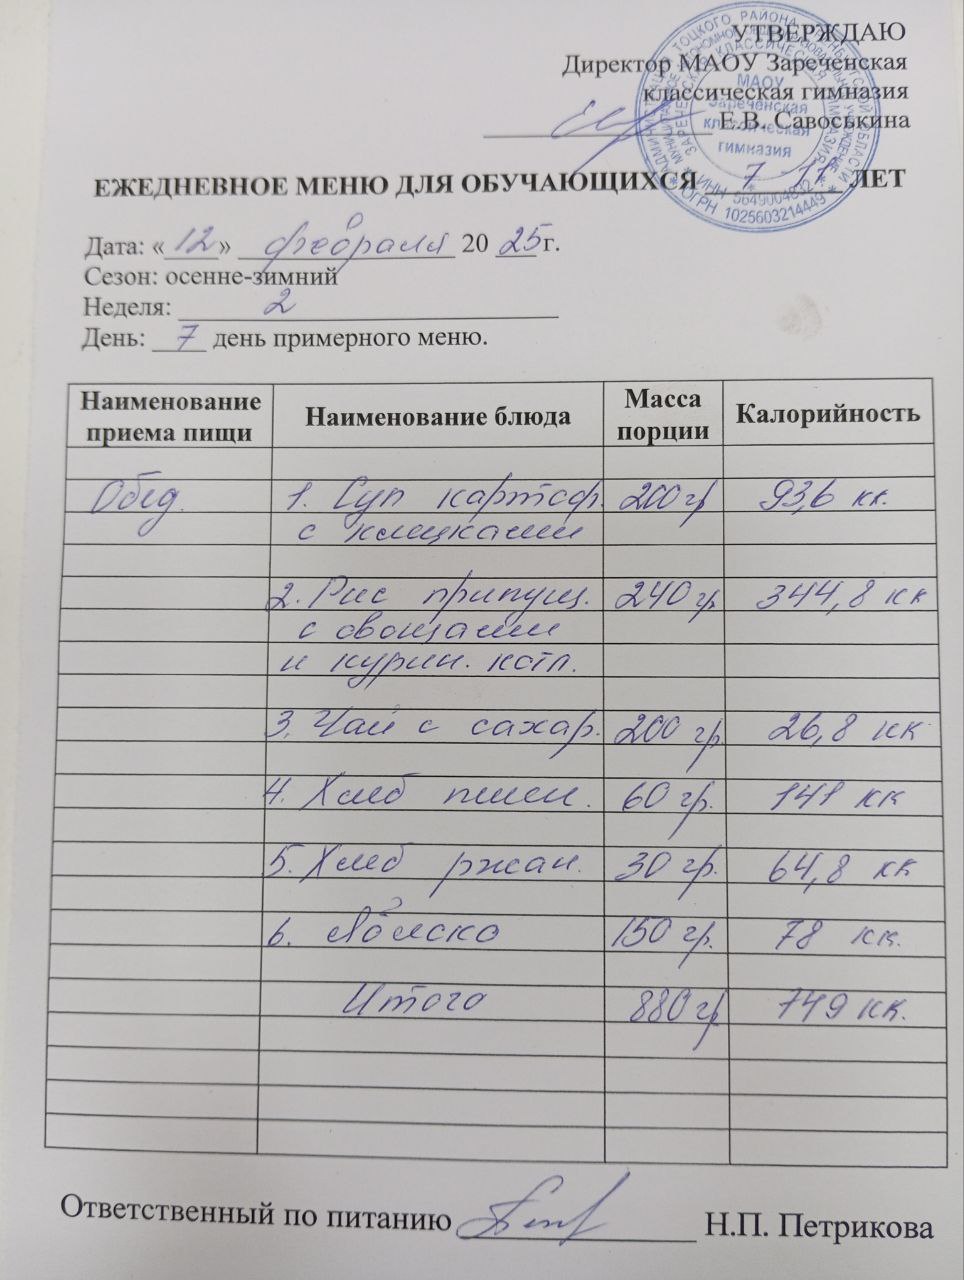 УТВЕРЖДАЮ
Директор МАОУ Зареченская
классическая гимназия
Е.В. Савоськина
МАОУ
Зареченская
классическая
гимназия
ИНН 5649004832
ОГРН 1025603214449
ЕЖЕДНЕВНОЕ МЕНЮ ДЛЯ ОБУЧАЮЩИХСЯ 7 - 17 ЛЕТ
Дата: «12» февраля 20 25г.
Сезон: осенне-зимний
Неделя: 2
День: 7 день примерного меню.
Наименование приема пищи Наименование блюда Масса порции Калорийность
Обед. 1. Суп картоф. 200 гр 93,6 кк.
с клецками
2. Рис припущ. 240 гр 344,8 кк
с овощами
и курин. котл.
3. Чай с сахар. 200 гр. 26,8 кк
4. Хлеб пшен. 60 гр. 141 кк
5. Хлеб ржан. 30 гр. 64,8 кк
6. Яблоко 150 гр. 78 кк.
Итого 880 гр 749 кк.
Ответственный по питанию Н.П. Петрикова